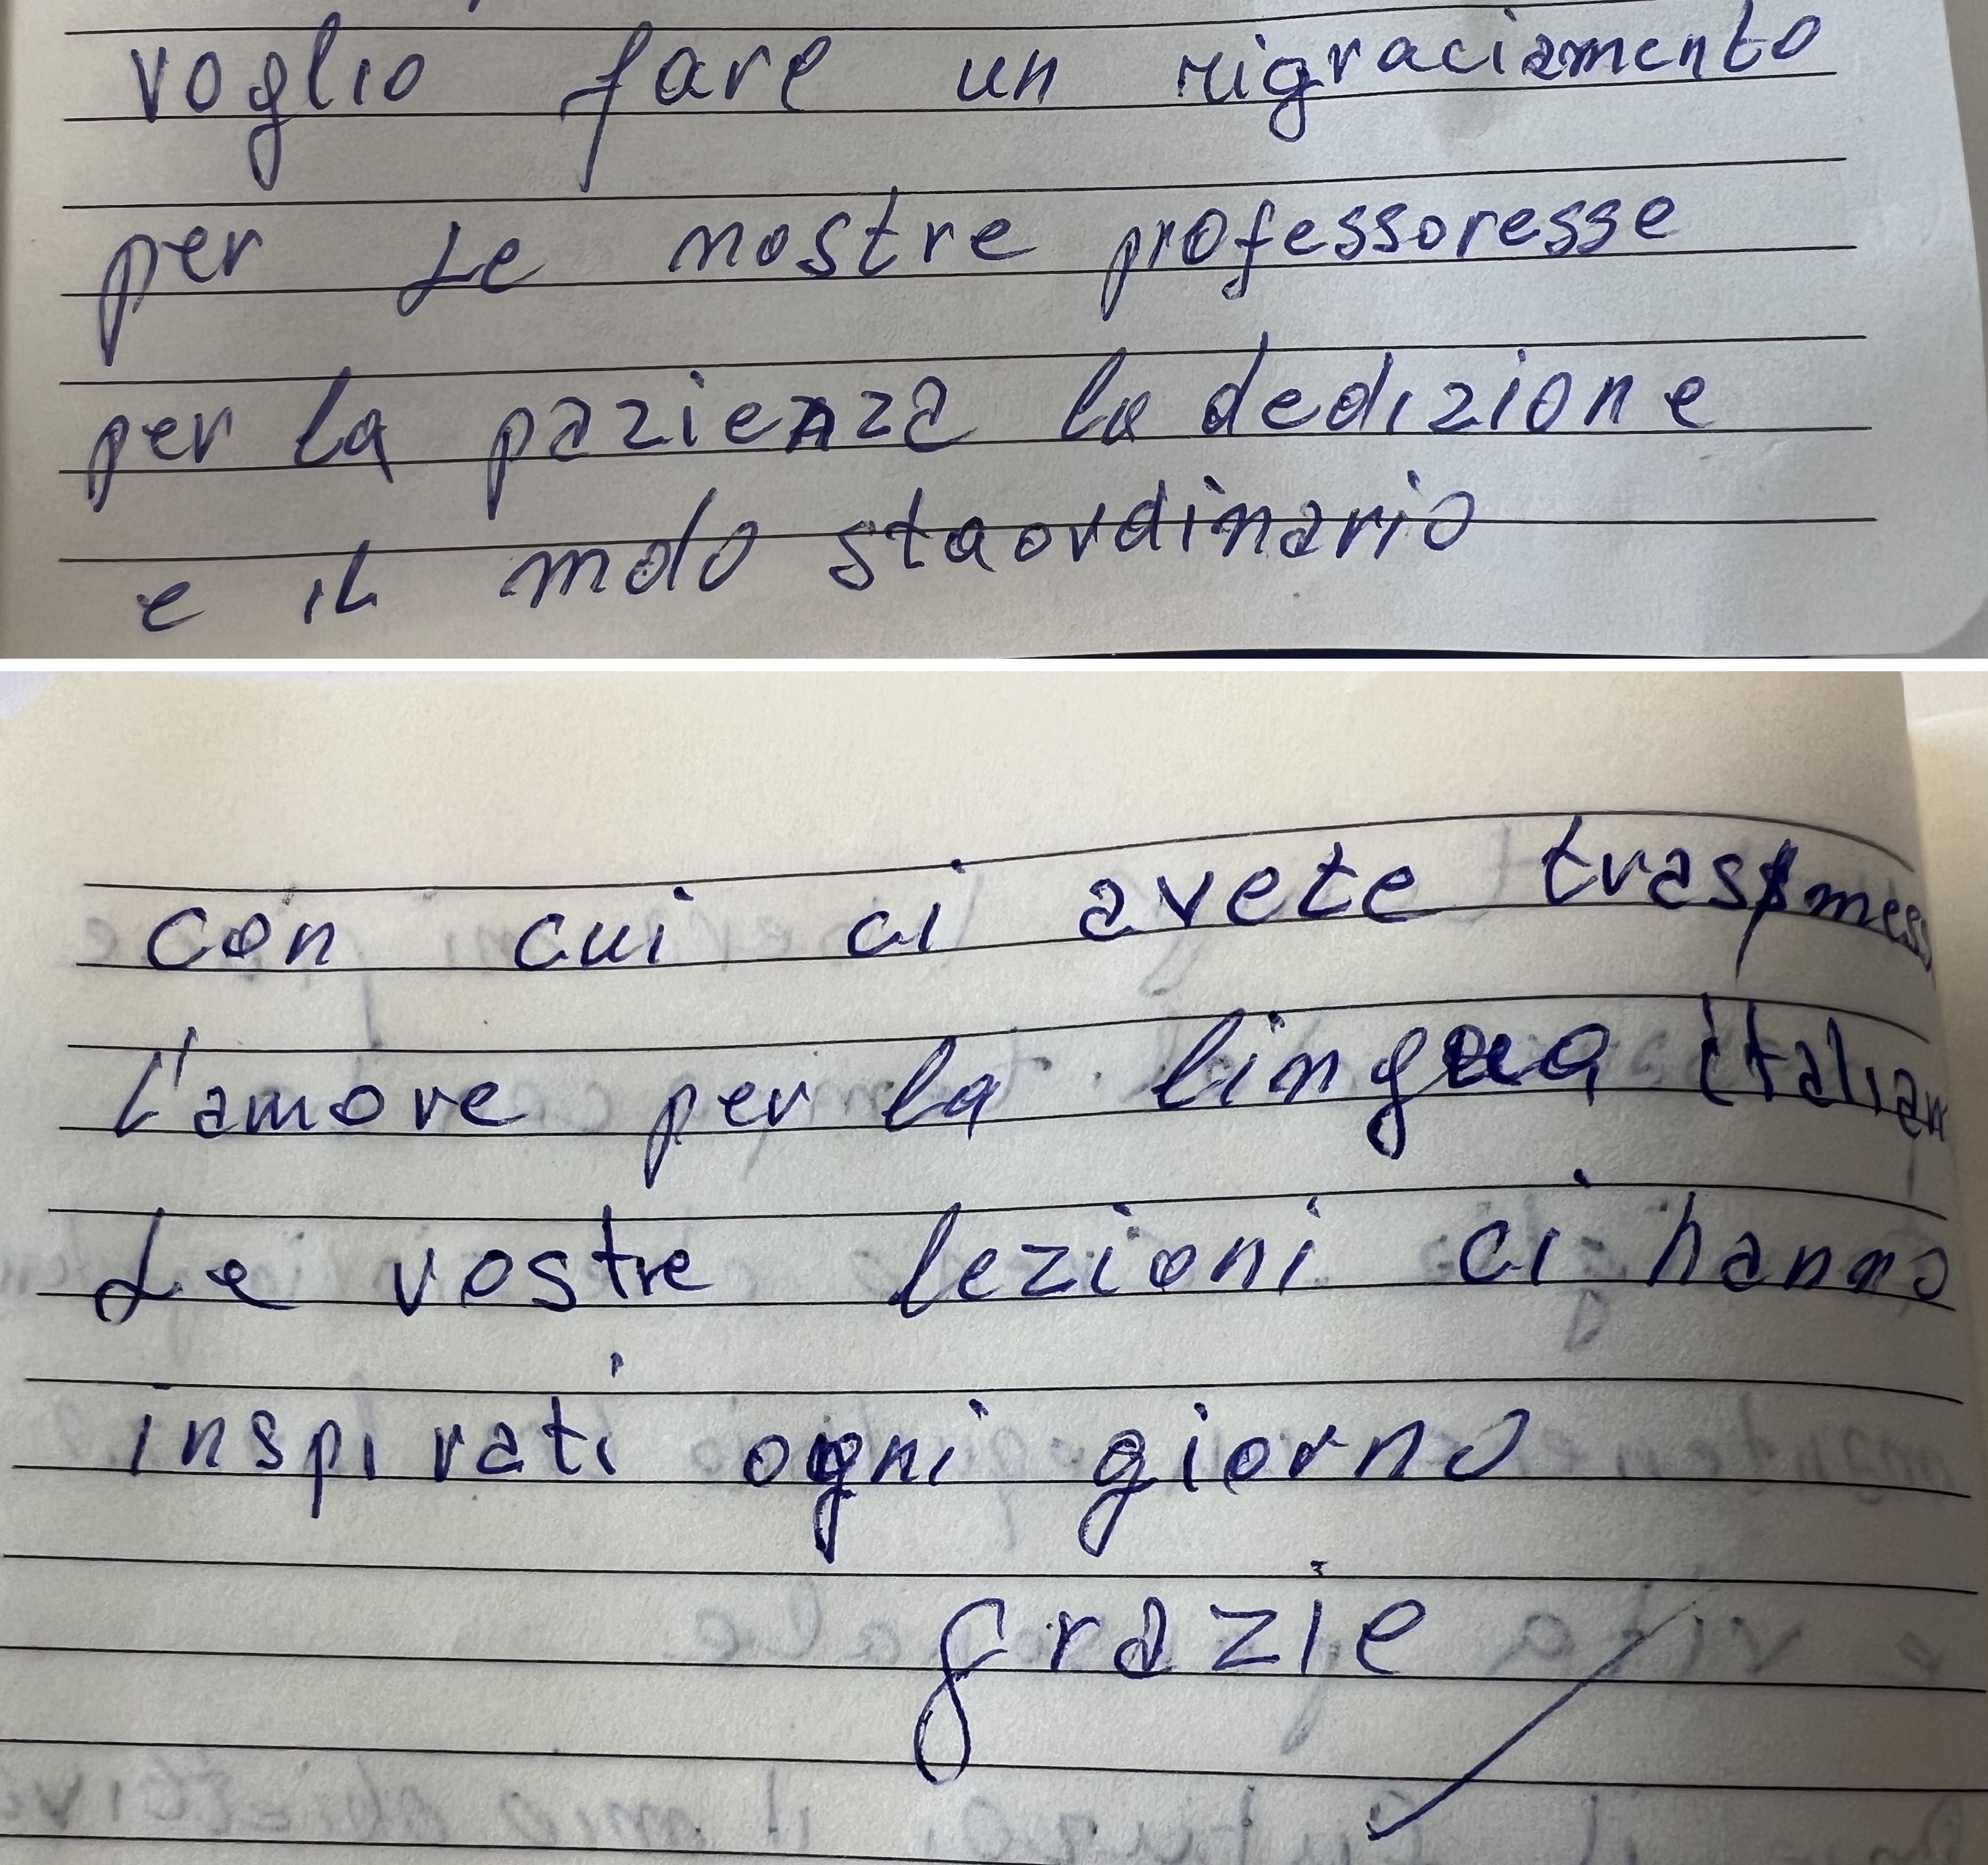 voglio fare un rigraciamento
per Le nostre professoresse
per la pazienza la dedizione
e il modo staordinario
con cui ci avete trasmess
L'amore per la lingua italian
Le vostre lezioni ci hanno
inspirati ogni giorno
grazie